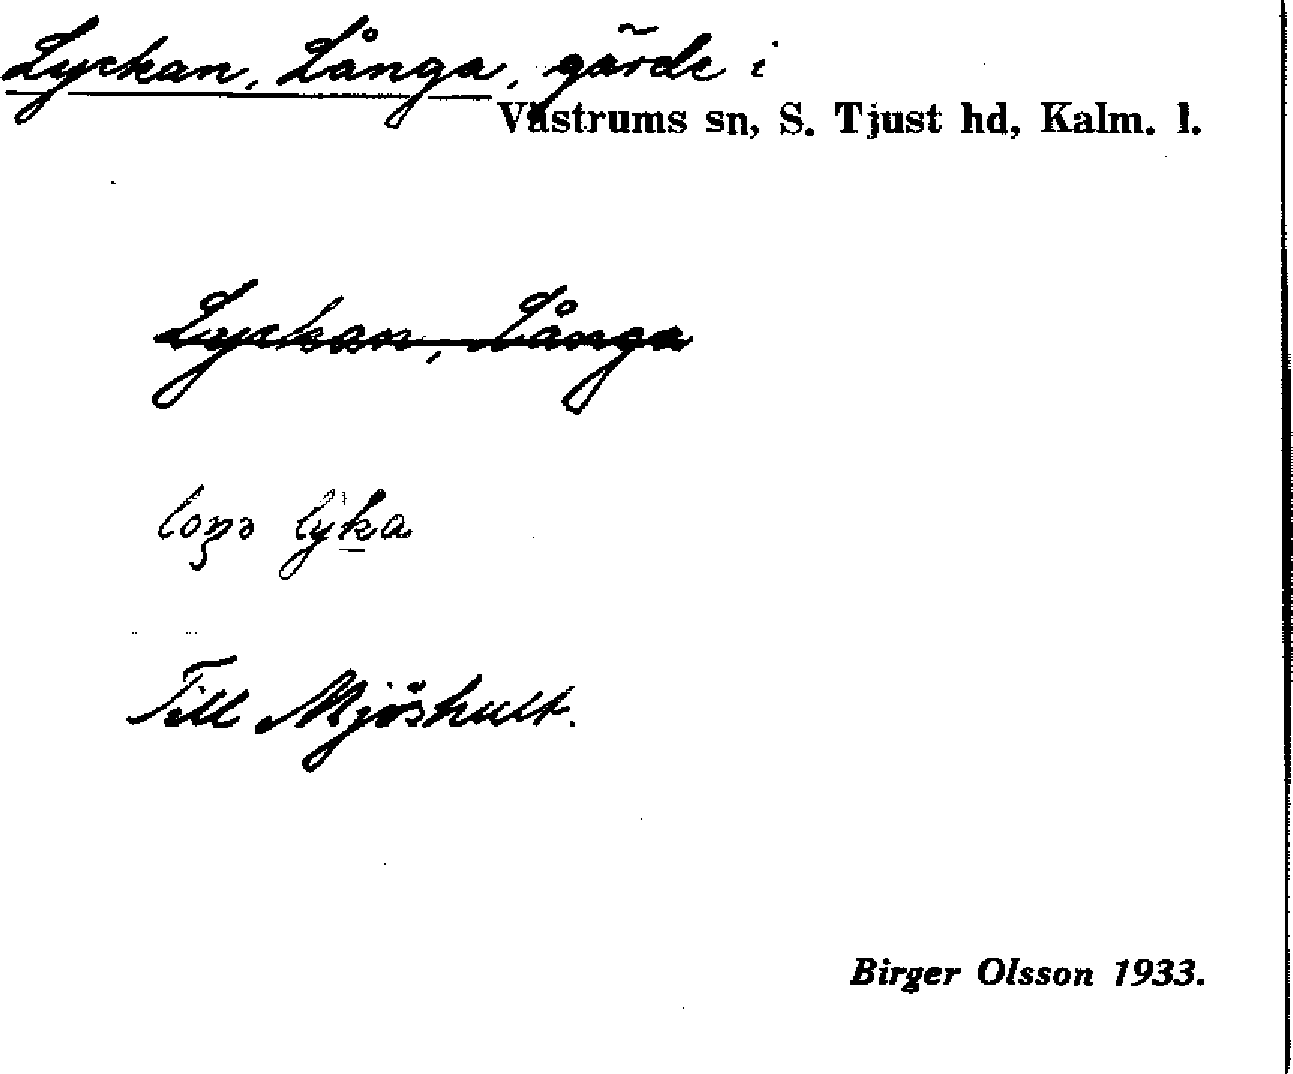 Lyckan, Långa, gärde i
Västrums sn, S. Tjust hd, Kalm. l.
Lyckan, Långa
Till Mjöshult.
Birger Olsson 1933.